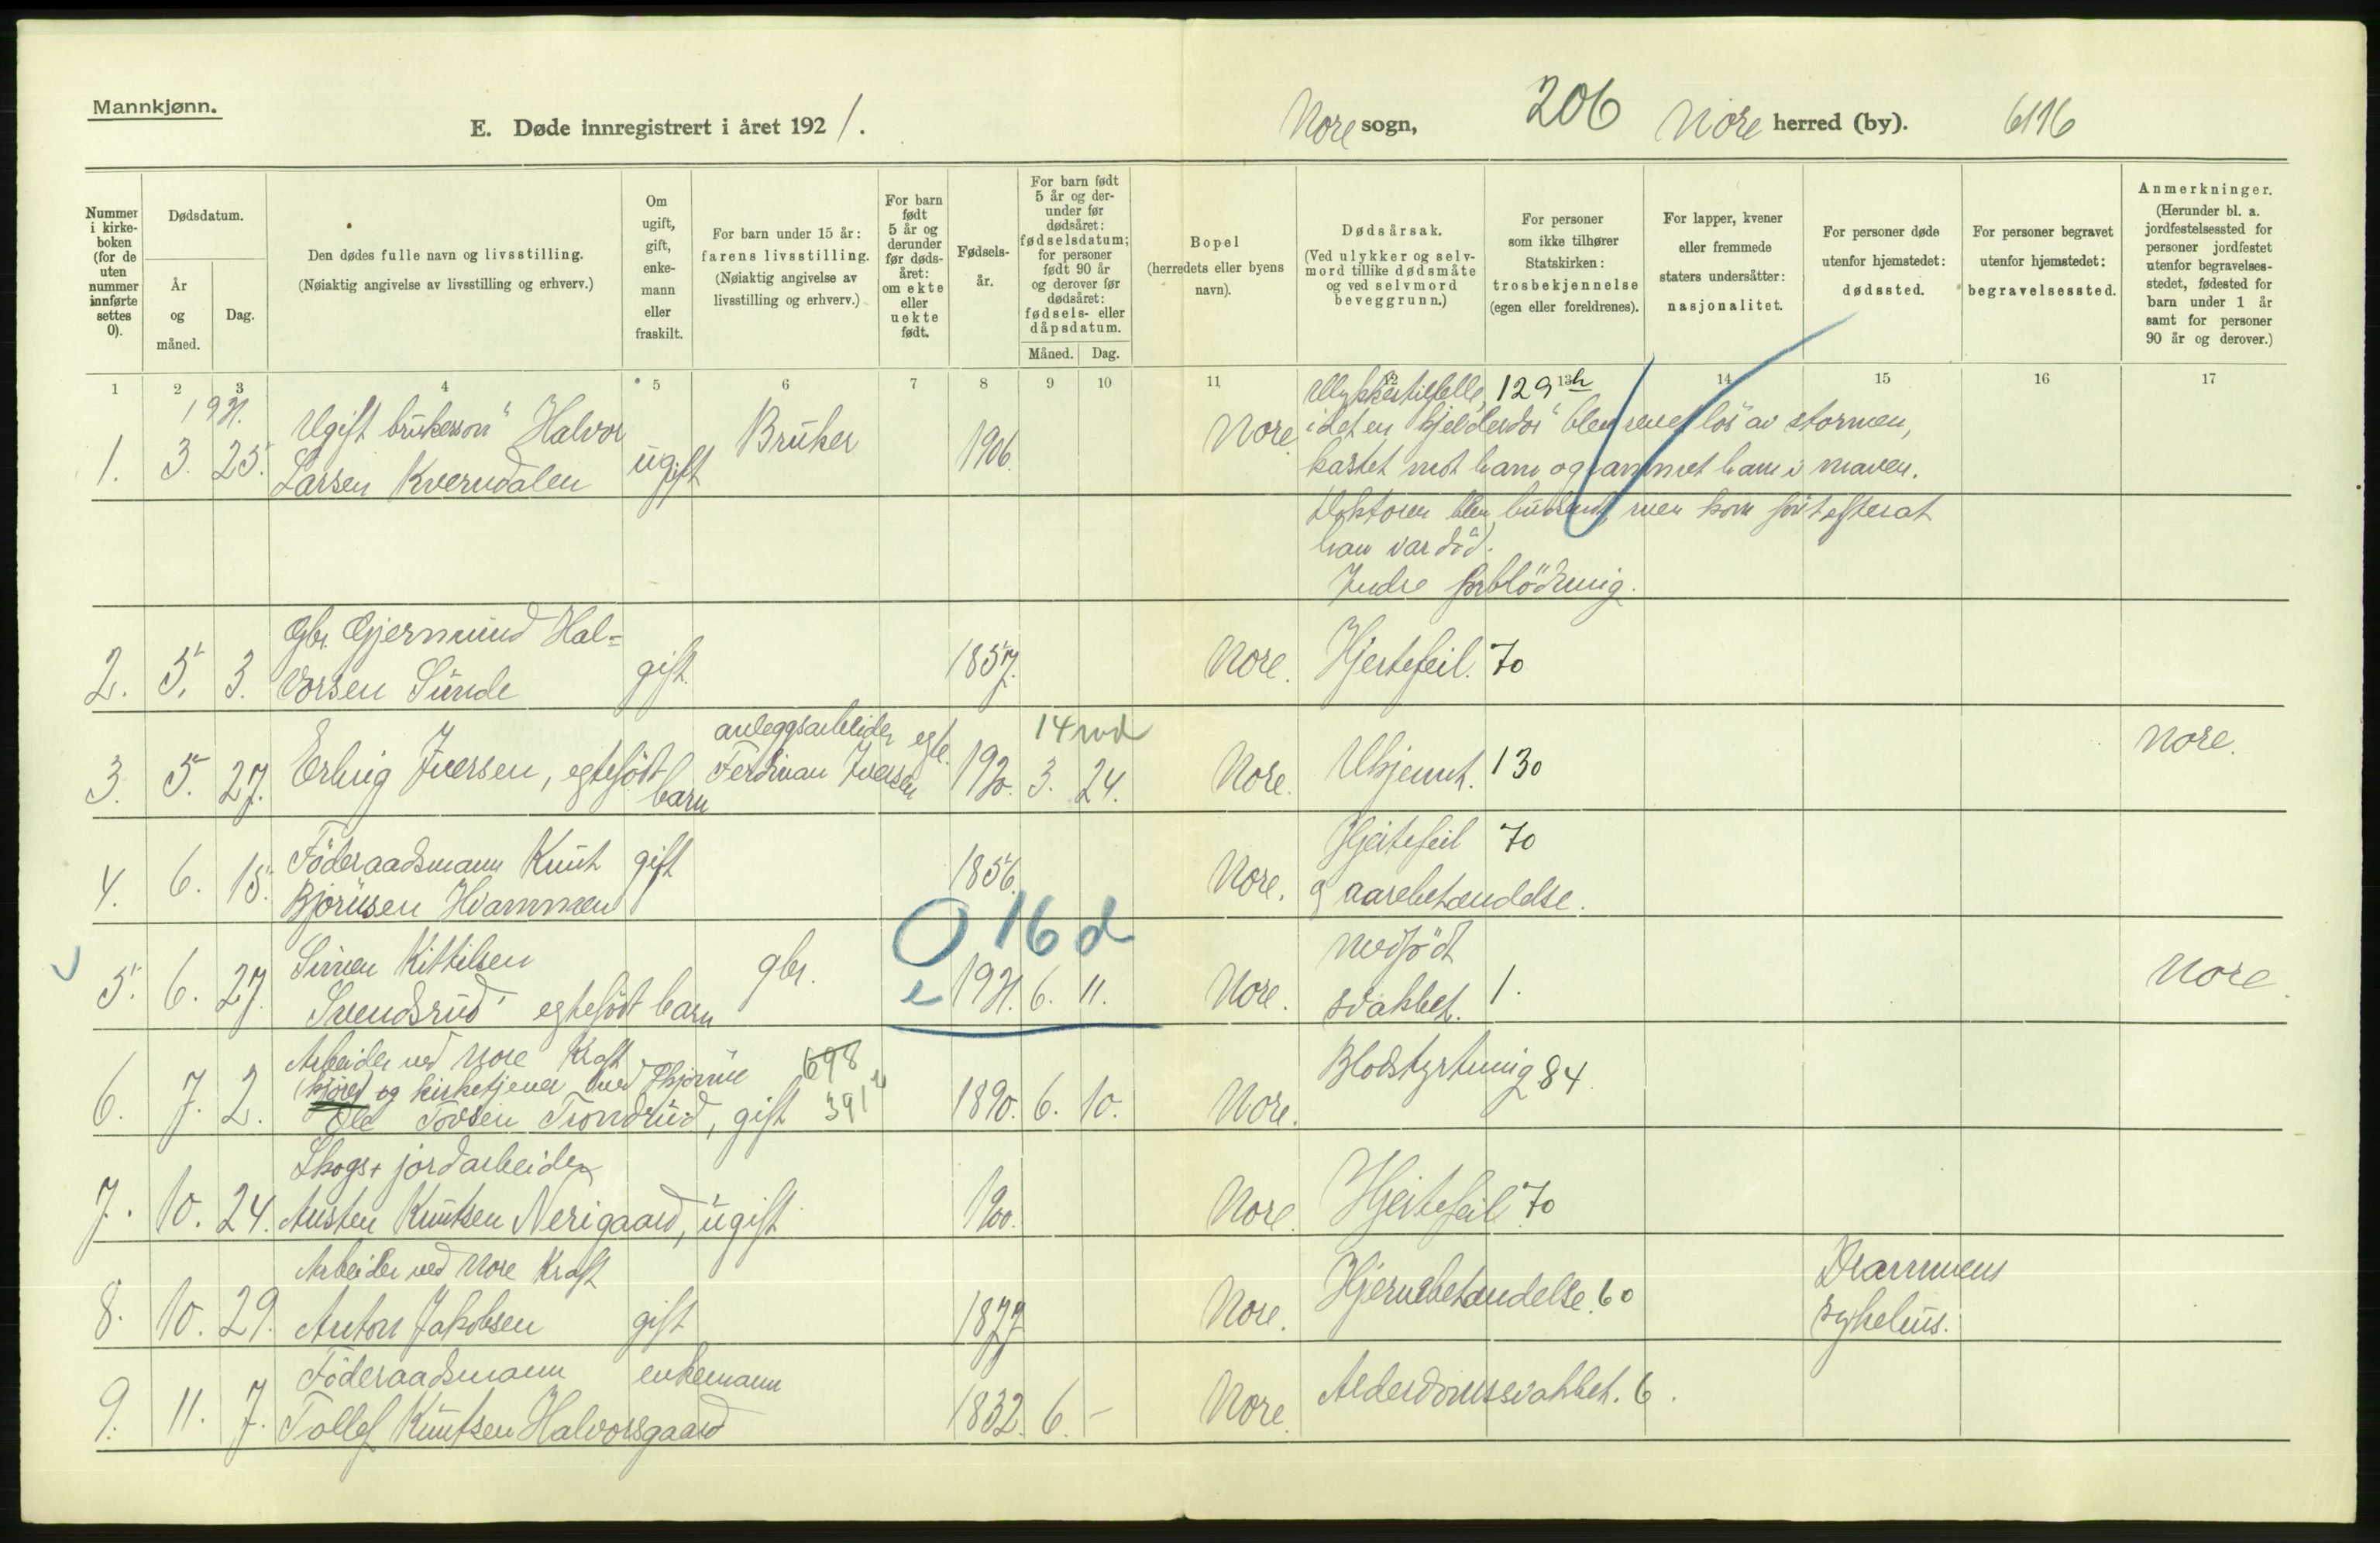 Mannkjønn.
E. Døde innregistrert i året 1921.
Nore sogn,
206
Nore herred (by).
6116
Nummer i kirkeboken (for de uten nummer innførte settes 0).
Dødsdatum.
År og måned.
Dag.
Den dødes fulle navn og livsstilling.
(Nøiaktig angivelse av livsstilling og erhverv.)
Om ugift, gift, enkemann eller fraskilt.
For barn under 15 år: farens livsstilling.
(Nøiaktig angivelse av livsstilling og erhverv.)
For barn født 5 år og derunder før dødsåret: om ekte eller uekte født.
Fødselsår.
For barn født 5 år og derunder før dødsåret: fødselsdatum; for personer født 90 år og derover før dødsåret: fødsels- eller dåpsdatum.
Måned. Dag.
Bopel
(herredets eller byens navn).
Dødsårsak.
(Ved ulykker og selvmord tillike dødsmåte og ved selvmord beveggrunn.)
For personer som ikke tilhører Statskirken: trosbekjennelse (egen eller foreldrenes).
For lapper, kvener eller fremmede staters undersåtter: nasjonalitet.
For personer døde utenfor hjemstedet: dødssted.
For personer begravet utenfor hjemstedet: begravelsessted.
Anmerkninger.
(Herunder bl. a. jordfestelsessted for personer jordfestet utenfor begravelsesstedet, fødested for barn under 1 år samt for personer 90 år og derover.)
1 2 3 4 5 6 7 8 9 10 11 12 13 14 15 16 17
1921.
1. 3. 25. Ugift brukersön Halvor
Larsen Kverndalen
ugift Bruker 1906. Nore.
Ulykkestilfelle, 129 h
idet en fjeldedör blev revet lös av stormen,
kastet mot ham og rammet ham i maven.
Doktoren blev budsendt, men kom först efterat
han var död.
Indre forblödning.
2. 5. 3. Gbr. Gjermund Hal=
vorsen Sünde
gift. 1857. Nore. Hjertefeil. 70
3. 5. 27. Erling Iversen, egtefödt
barn
anleggsarbeider egte.
Ferdinan Iversen
14 md
1920. 3. 24. Nore. Ukjennt. 130 Nore.
4. 6. 15. Föderaadsmann Knut
Björnsen Hvammen
gift 1856. Nore. Hjertefeil 70
og aarebetændelse.
5. 6. 27. Simen Kittilsen
Svendsrud egtefödt barn
gbr.
0 16 d
e 1921. 6. 11. Nore. Medfödt
svakhet. 1. Nore.
6. 7. 2. Arbeider ved Nore Kraft
(kjörer) og kirketjener ved Skjönne
Ole Tovsen Trondrud, gift
698
391
1890. 6. 10. Nore. Blodstyrtning 84.
7. 10. 24. Skogs+ jordarbeider
Austen Knutsen Nerigaard, ugift
1900. Nore. Hjertefeil 70
8. 10. 29. Arbeider ved Nore Kraft
Anton Jakobsen gift
1877 Nore. Hjernebetændelse. 60 Drammens
sykehus.
9. 11. 7. Föderaadsmann enkemann
Tollef Knutsen Halvorsgaard
1832. 6. - Nore. Alderdomssvakhet. 6.